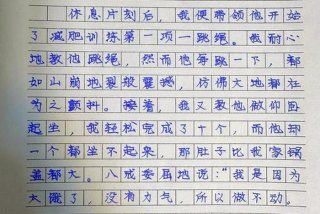 休息片刻后，我便带领他开始
了减肥训练第一项一跳绳。我耐心
地教他跳绳，然而他每跳一下，都
如山崩地裂般震撼，仿佛大地都在
为之颤抖。接着，我又教他做仰卧
起坐，我轻松完成了十个，而他却
一个都坐不起来，那肚子比我家锅
盖都大。八戒委屈地说："我是因为
太饿了，没有力气，所以做不动。